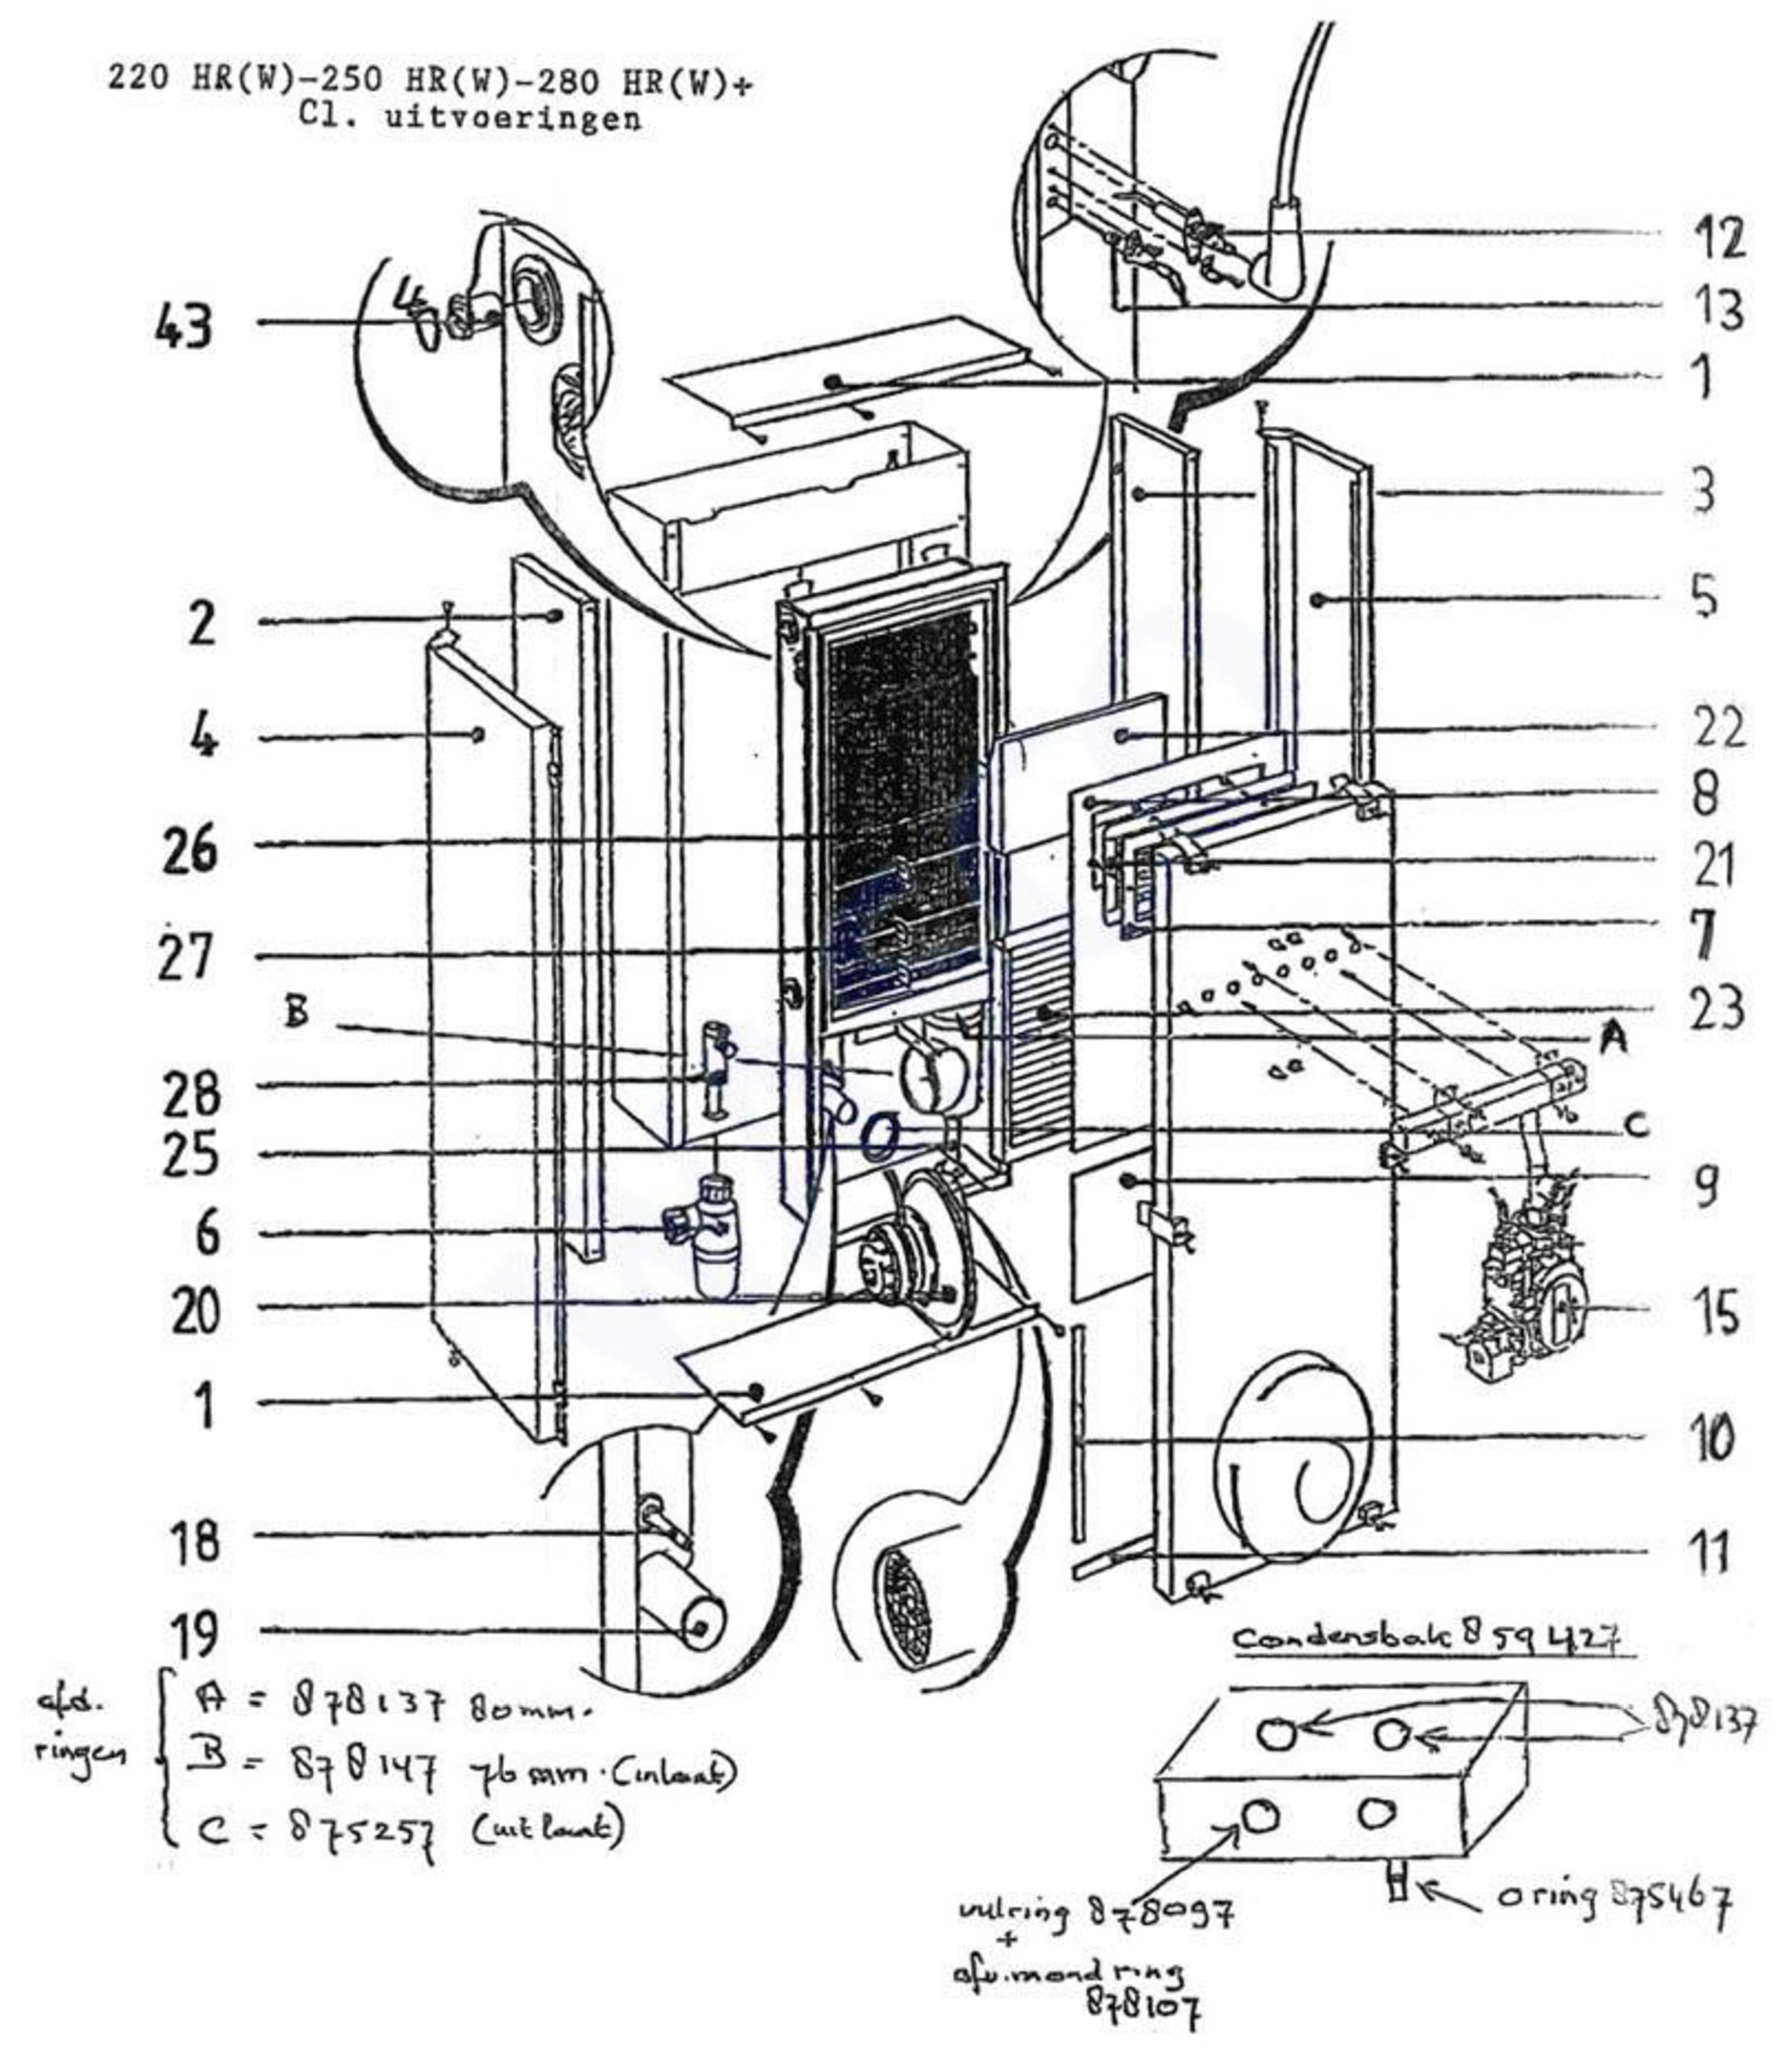 220 HR(W)-250 HR(W)-280 HR(W)+
Cl. uitvoeringen
12
43
13
1
3
2
5
4
22
8
26
21
27
7
B
23
A
28
C
25
9
6
20
15
1
10
18
11
19
Condensbak 859427
afd.
ringen
A = 878137 80mm.
B = 878147 76 mm. (inlaat)
C = 875257 (uitlaat)
878137
vulring 878097
+
mond ring
878107
o ring 875467